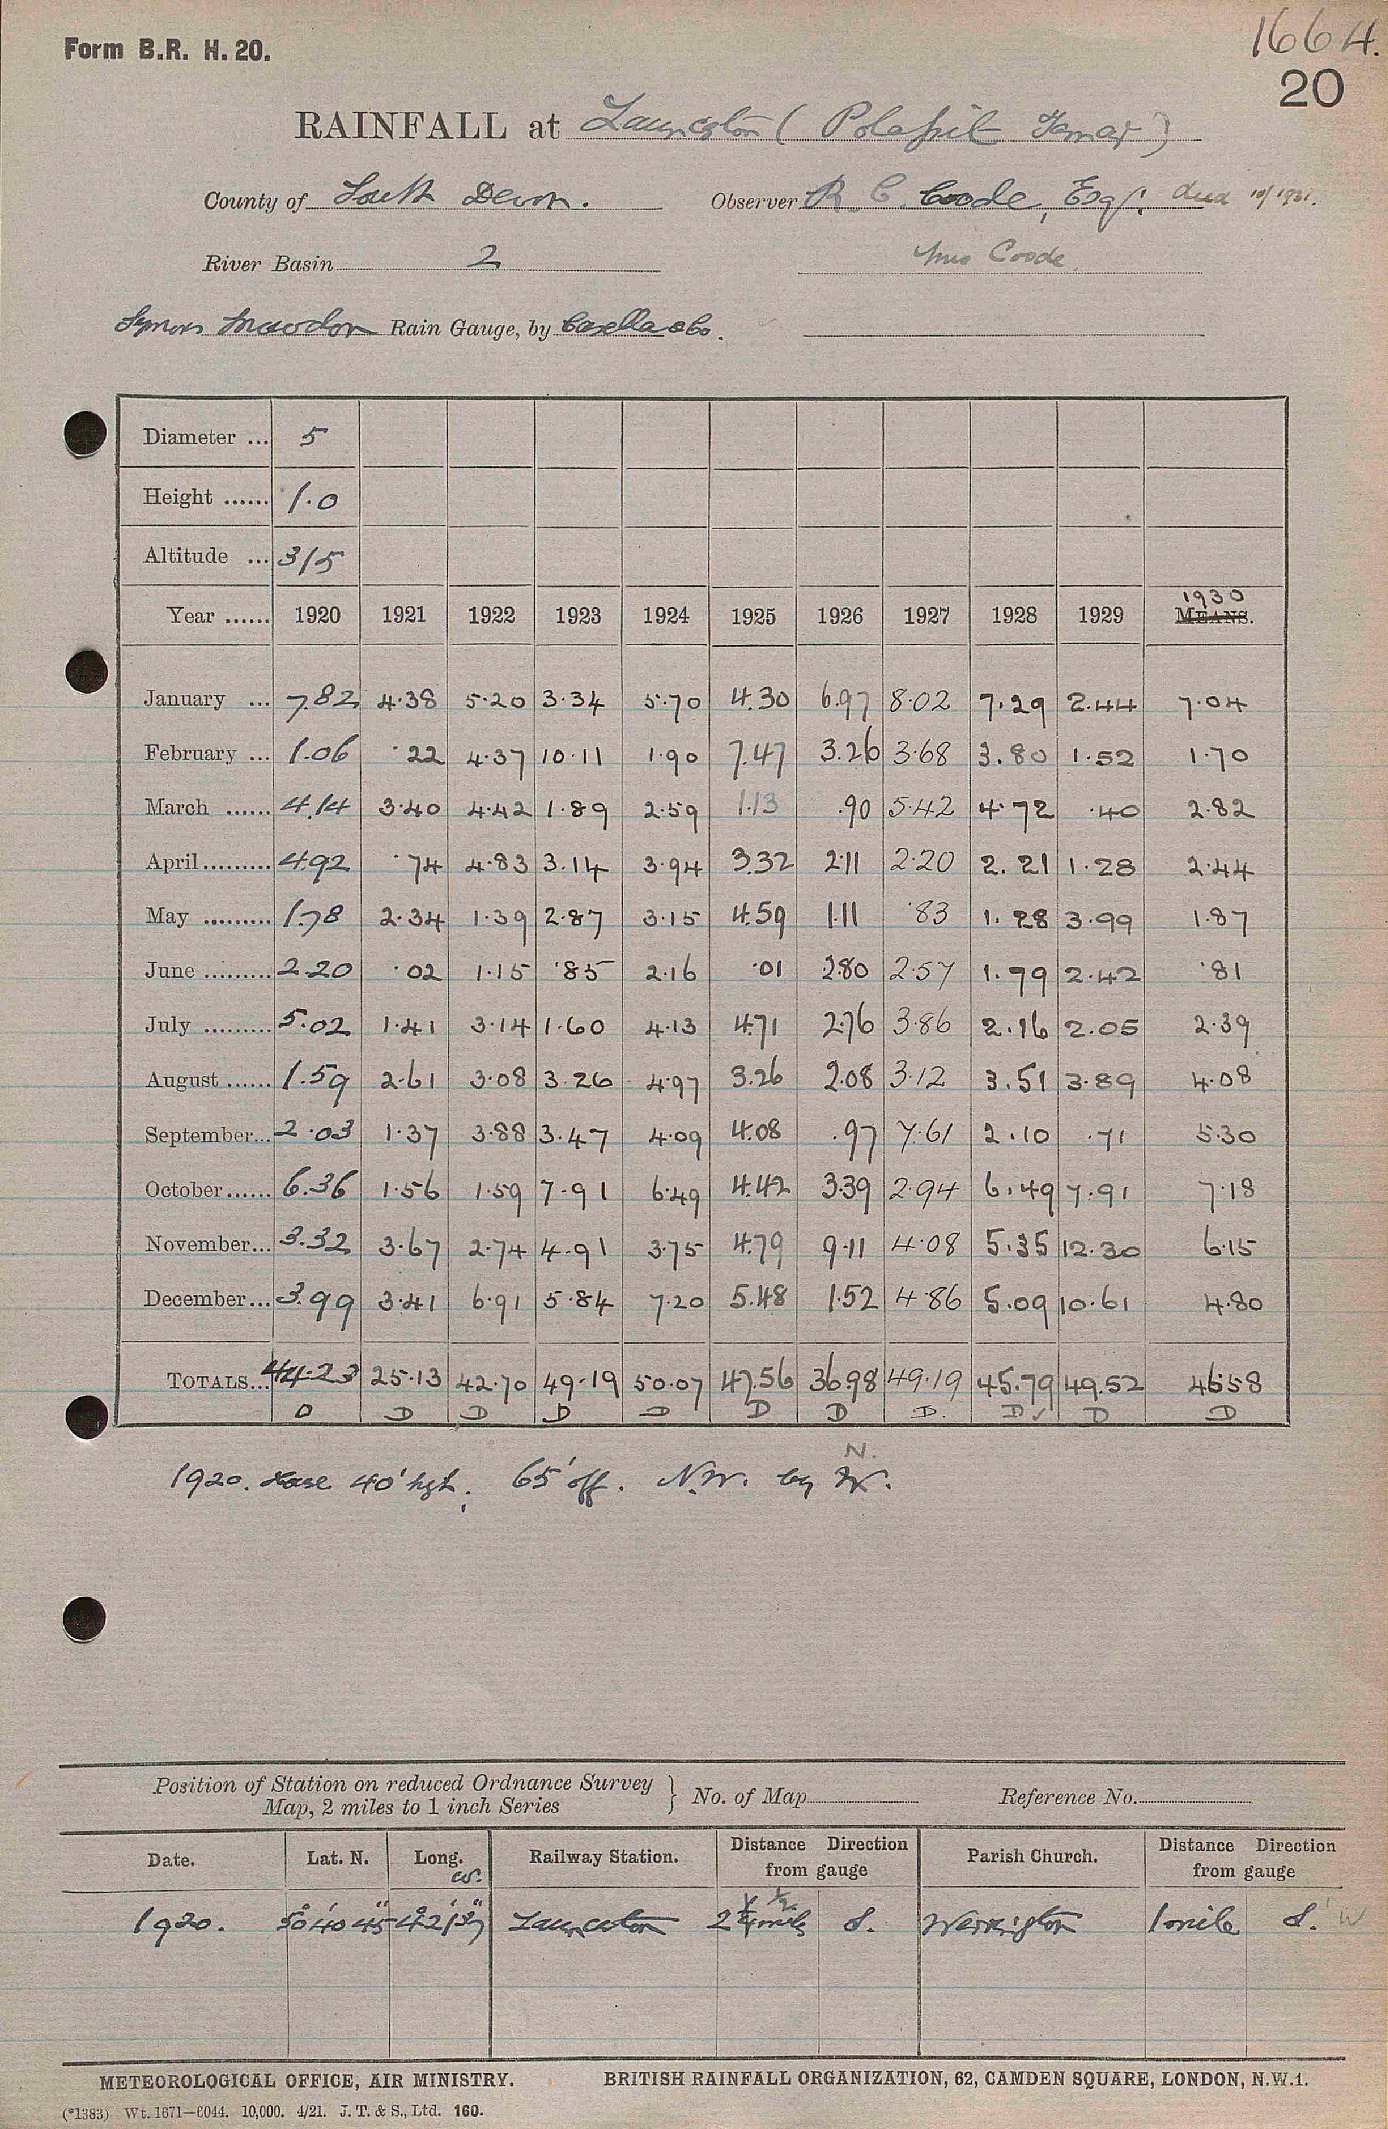 1664.
Form B.R. H. 20.
20
RAINFALL at Launceston (Polapit Tamar)
County of South Devon. Observer R. C. Coode, Esqr. died 10/1931.
River Basin 2 Mrs Coode
Symons Snowdon Rain Gauge, by Casella & Co.
Diameter ... 5
Height ...... 1.0
Altitude ... 315
1930
Year ...... 1920 1921 1922 1923 1924 1925 1926 1927 1928 1929 MEANS.
January ... 7.82 4.38 5.20 3.34 5.70 4.30 6.97 8.02 7.29 2.44 7.04
February ... 1.06 .22 4.37 10.11 1.90 7.47 3.26 3.68 3.80 1.52 1.70
March ...... 4.14 3.40 4.42 1.89 2.59 1.13 .90 5.42 4.72 .40 2.82
April ......... 4.92 .74 4.83 3.14 3.94 3.32 2.11 2.20 2.21 1.28 2.44
May ......... 1.78 2.34 1.39 2.87 3.15 4.59 1.11 .83 1.28 3.99 1.87
June ......... 2.20 .02 1.15 .85 2.16 .01 2.80 2.57 1.79 2.42 .81
July ......... 5.02 1.41 3.14 1.60 4.13 4.71 2.76 3.86 2.16 2.05 2.39
August ...... 1.59 2.61 3.08 3.26 4.97 3.26 2.08 3.12 3.51 3.89 4.08
September... 2.03 1.37 3.88 3.47 4.09 4.08 .97 7.61 2.10 .71 5.30
October ...... 6.36 1.56 1.59 7.91 6.49 4.42 3.39 2.94 6.49 7.91 7.18
November... 3.32 3.67 2.74 4.91 3.75 4.79 9.11 4.08 5.35 12.30 6.15
December... 3.99 3.41 6.91 5.84 7.20 5.48 1.52 4.86 5.09 10.61 4.80
TOTALS... 44.23 25.13 42.70 49.19 50.07 47.56 36.98 49.19 45.79 49.52 46.58
D D D D D D D D. D ✓ D D
N.
1920. House 40' hgt. 65' off. N.W. by W.
Position of Station on reduced Ordnance Survey
Map, 2 miles to 1 inch Series } No. of Map Reference No.
Date. Lat. N. Long. W. Railway Station. Distance Direction from gauge Parish Church. Distance Direction from gauge
1920. 50° 40' 45" 4° 21' Launceston 2 miles S. Werrington 1 mile S. W
METEOROLOGICAL OFFICE, AIR MINISTRY. BRITISH RAINFALL ORGANIZATION, 62, CAMDEN SQUARE, LONDON, N.W.1.
(*1383) Wt. 1671—6044. 10,000. 4/21. J. T. & S., Ltd. 160.